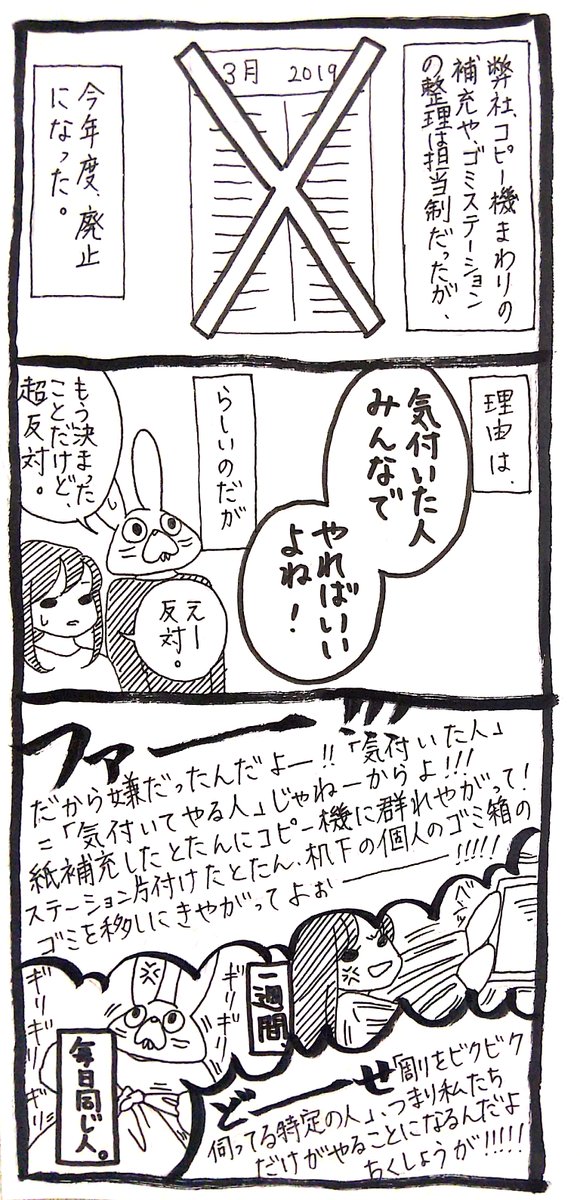 弊社、コピー機まわりの
補充や、ゴミステーション
の整理は担当制だったが、
3月 2019
今年度、廃止
になった。
理由は、
気付いた人
みんなで
やればいい
よね!
らしいのだが
もう決まった
ことだけど、
超反対。
えー
反対。
ファー!!!
だから嫌だったんだよー!!「気付いた人」
=「気付いてやる人」じゃねーからよ!!!
紙補充したとたんにコピー機に群れやがって!
ステーション片付けたとたん、机下の個人のゴミ箱の
ゴミを移しにきやがってよぉー!!!!!
一週間、
ギリギリ
ギリギリ
ギリ
毎日同じ人。
どーーせ「周りをビクビク
伺ってる特定の人」、つまり私たち
だけがやることになるんだよ
ちくしょうが!!!!!